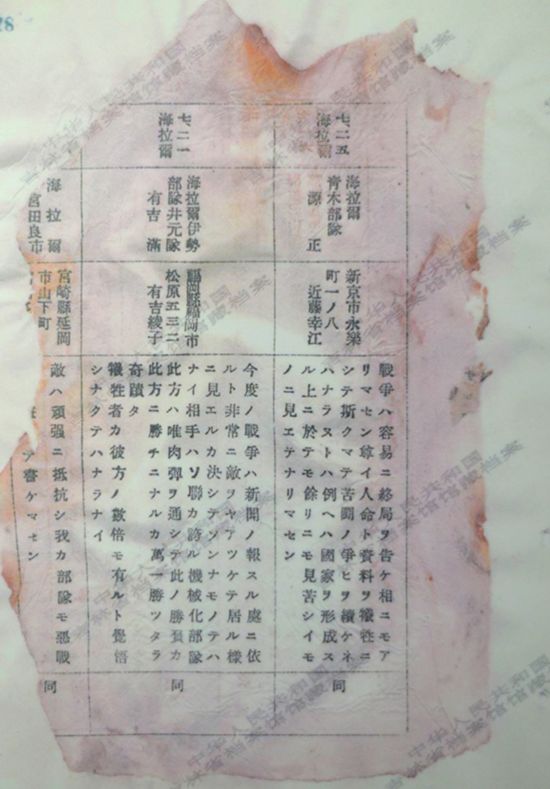 28
七二五
海拉爾
海拉爾
青木部隊
源 正
新京市永樂
町一ノ八
近藤幸江
戰爭ハ容易ニ終局ヲ告ケ相ニモア
リマセン尊イ人命ト資料ヲ犠牲ニ
シテ斯クマテ苦鬪ノ爭ヒヲ續ケネ
ハナラヌトハ例ヘハ國家ヲ形成ス
ル上ニ於テモ餘リニモ見苦シイモ
ノニ見エテナリマセン
同
七二一
海拉爾
海拉爾伊勢
部隊井元隊
有吉 滿
福岡縣福岡市
松原五三二
有吉綾子
今度ノ戰爭ハ新聞ノ報スル處ニ依
ルト非常ニ敵ヲヤツツケテ居ル樣
ニ見エルカ決シテソンナモノテハ
ナイ相手ハソ聯カ誇ル機械化部隊
此方ハ唯肉彈ヲ通シテ此ノ勝負カ
此方ニ勝チニナルカ萬一勝ツタラ
奇蹟タ
犠牲者カ彼方ノ數倍モ有ルト覺悟
シナクテハナラナイ
同
海拉爾
宮田良市
宮崎縣延岡
市山下町
敵ハ頑强ニ抵抗シ我カ部隊モ惡戰
テ書ケマセン
同
中华人民共和国
吉林省档案馆馆藏档案